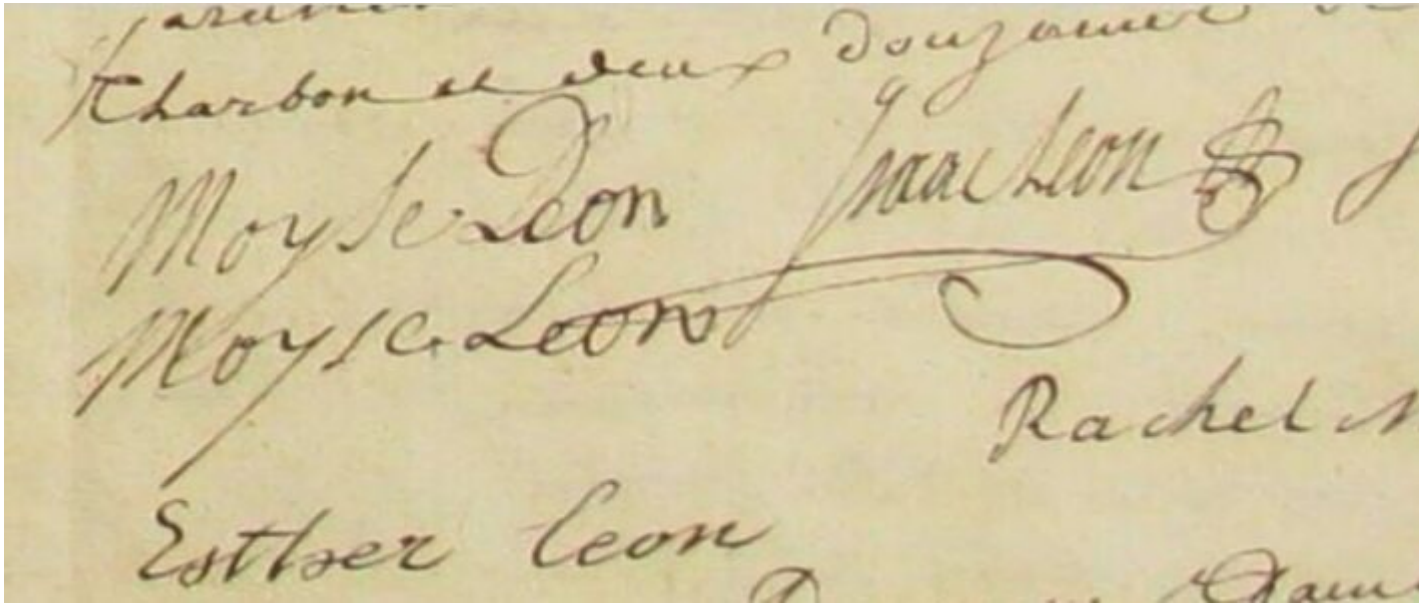 Charbon et deux Douzaines
Moyse Leon Isaac Leon
Moyse Leon
Rachel
Esther Leon